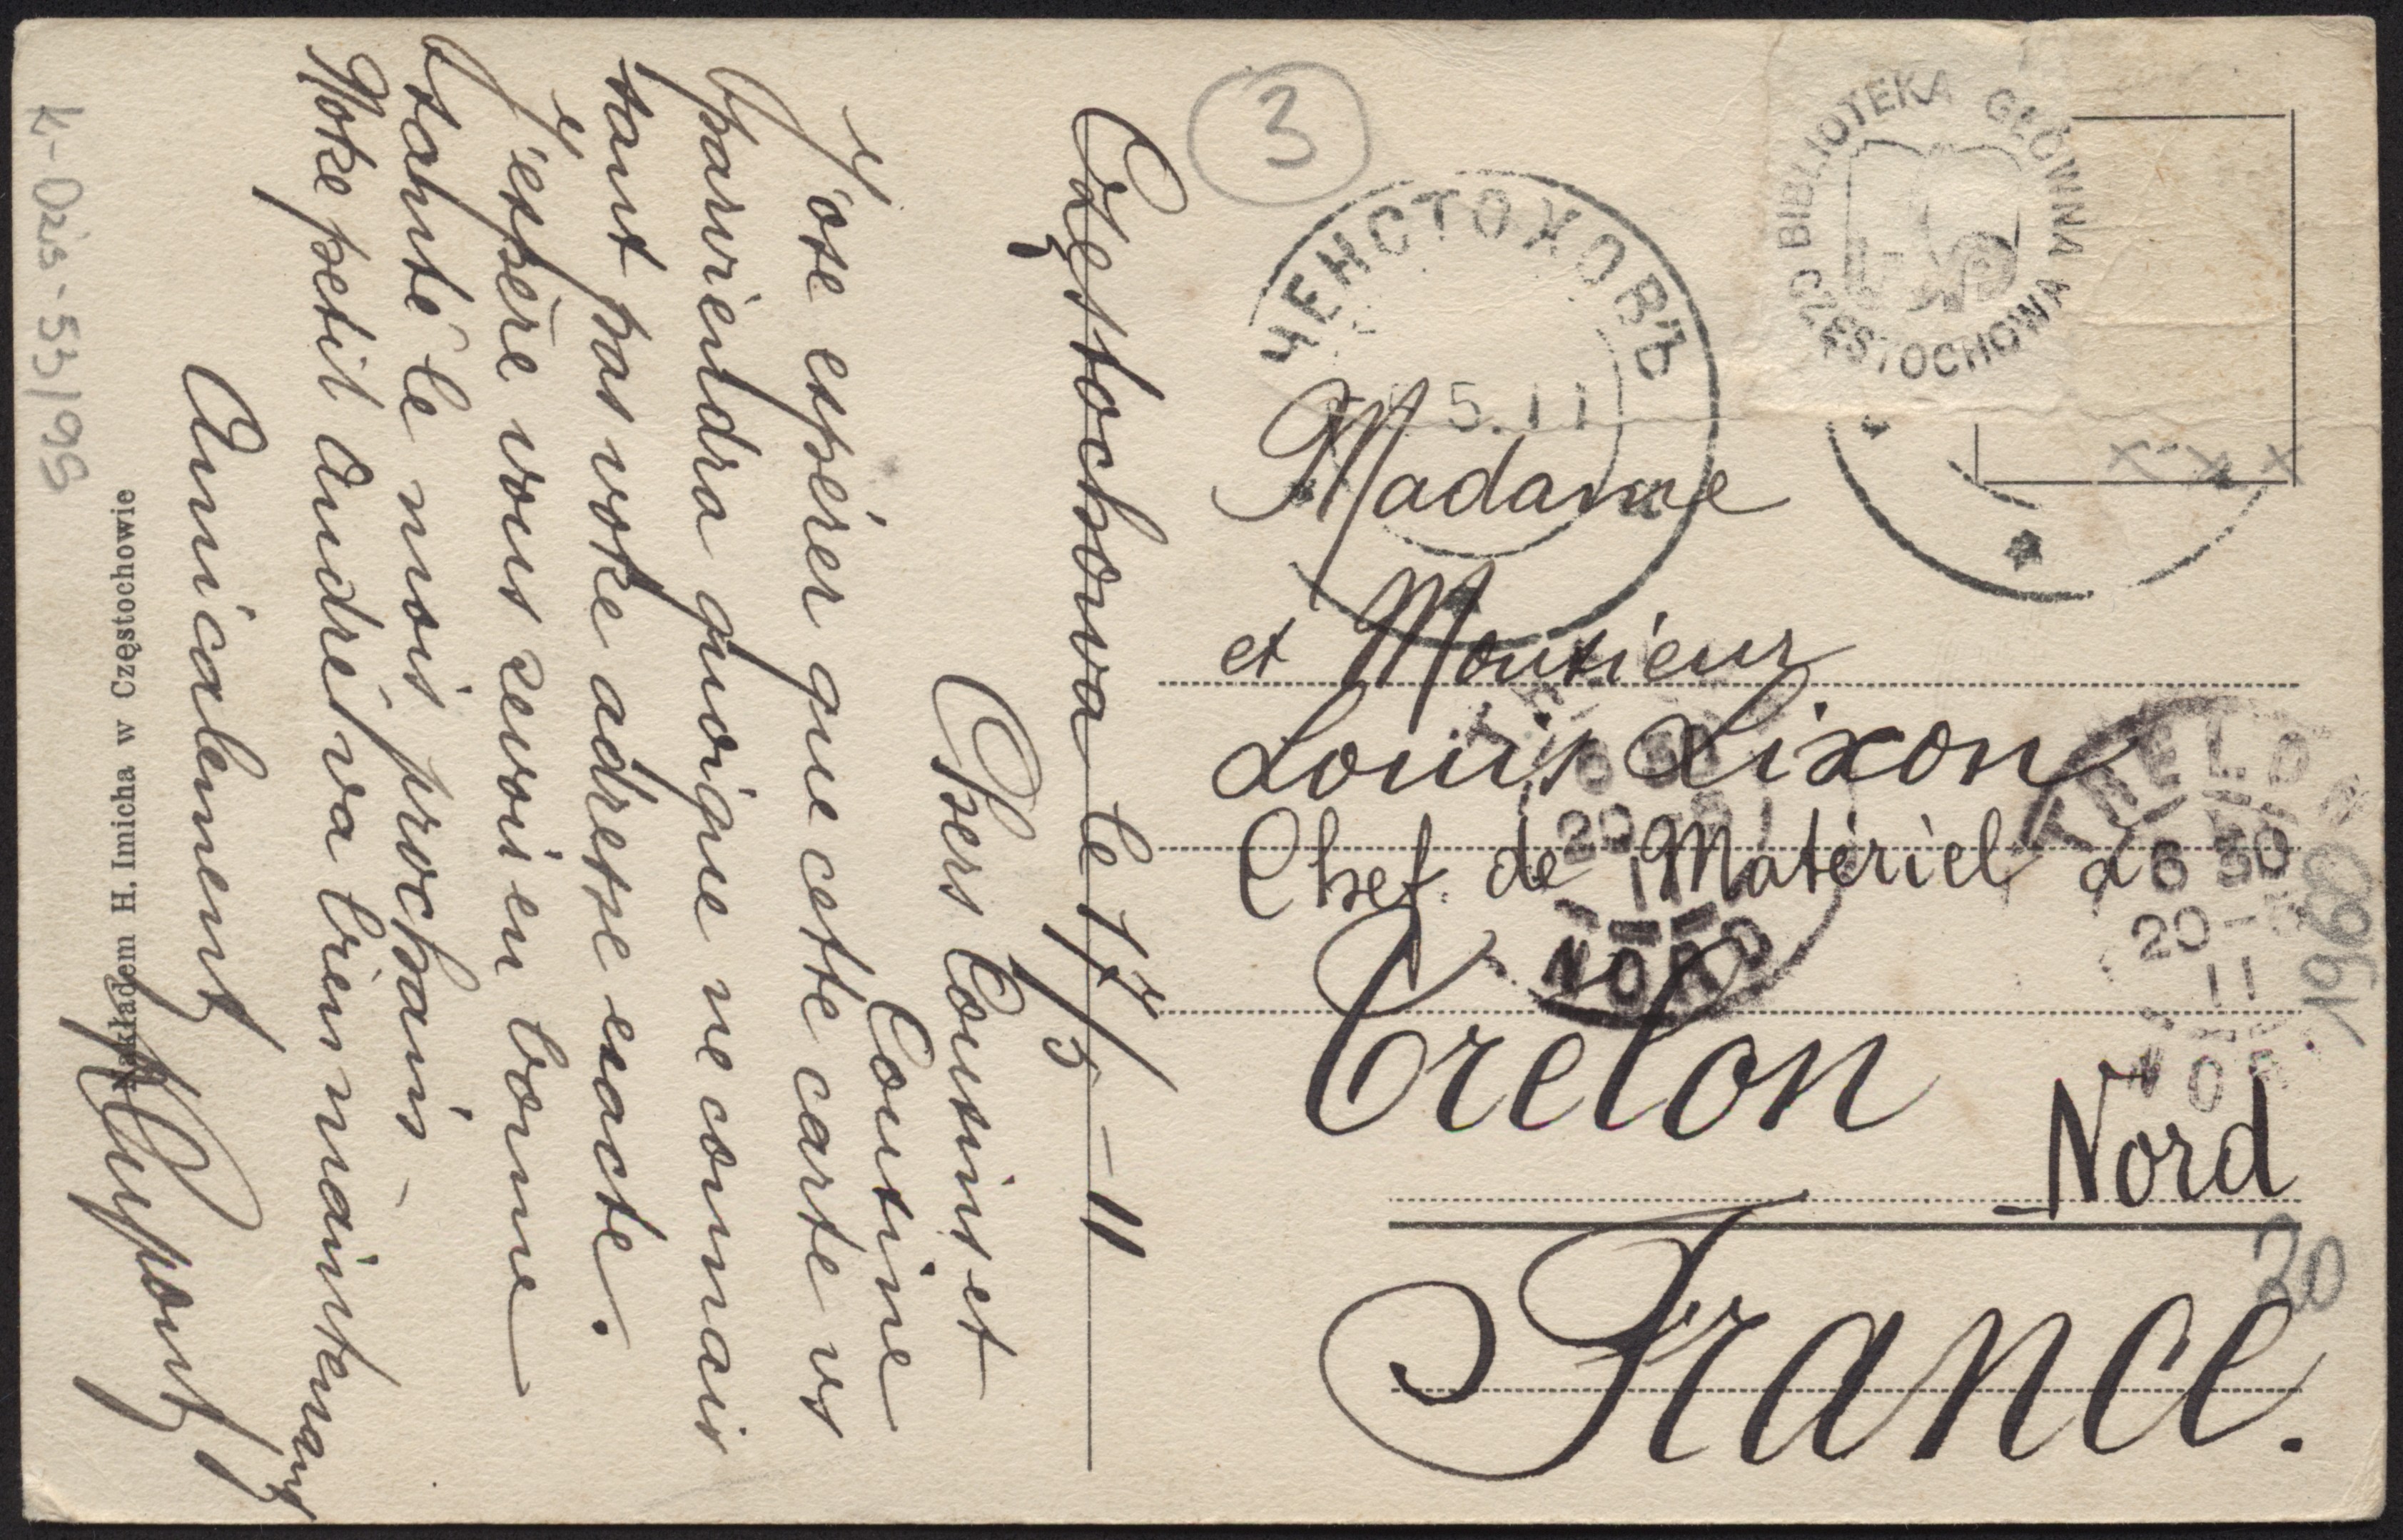 Częstochowa le 17/5 – 11
Chers Cousins et
Cousine
J'ose espérer que cette carte vs
parviendra quoique ne connais
sant pas votre adresse exacte.
J'espère vous revoir en bonne
santé le mois prochain
Votre petit André va bien maintenant
Amicalement
Dupont
Nakładem H. Imicha w Częstochowie
K-Dzs-53/99
3
ЧЕНСТОХОВЪ
5.11
BIBLIOTEKA GŁÓWNA
CZĘSTOCHOWA
x-x x
Madame
et Monsieur
Louis Lixon
Chef de Matériel à
Trélon
Nord
France.
20
NORD
TRELON
6 30
20
11
NOR
1960
20